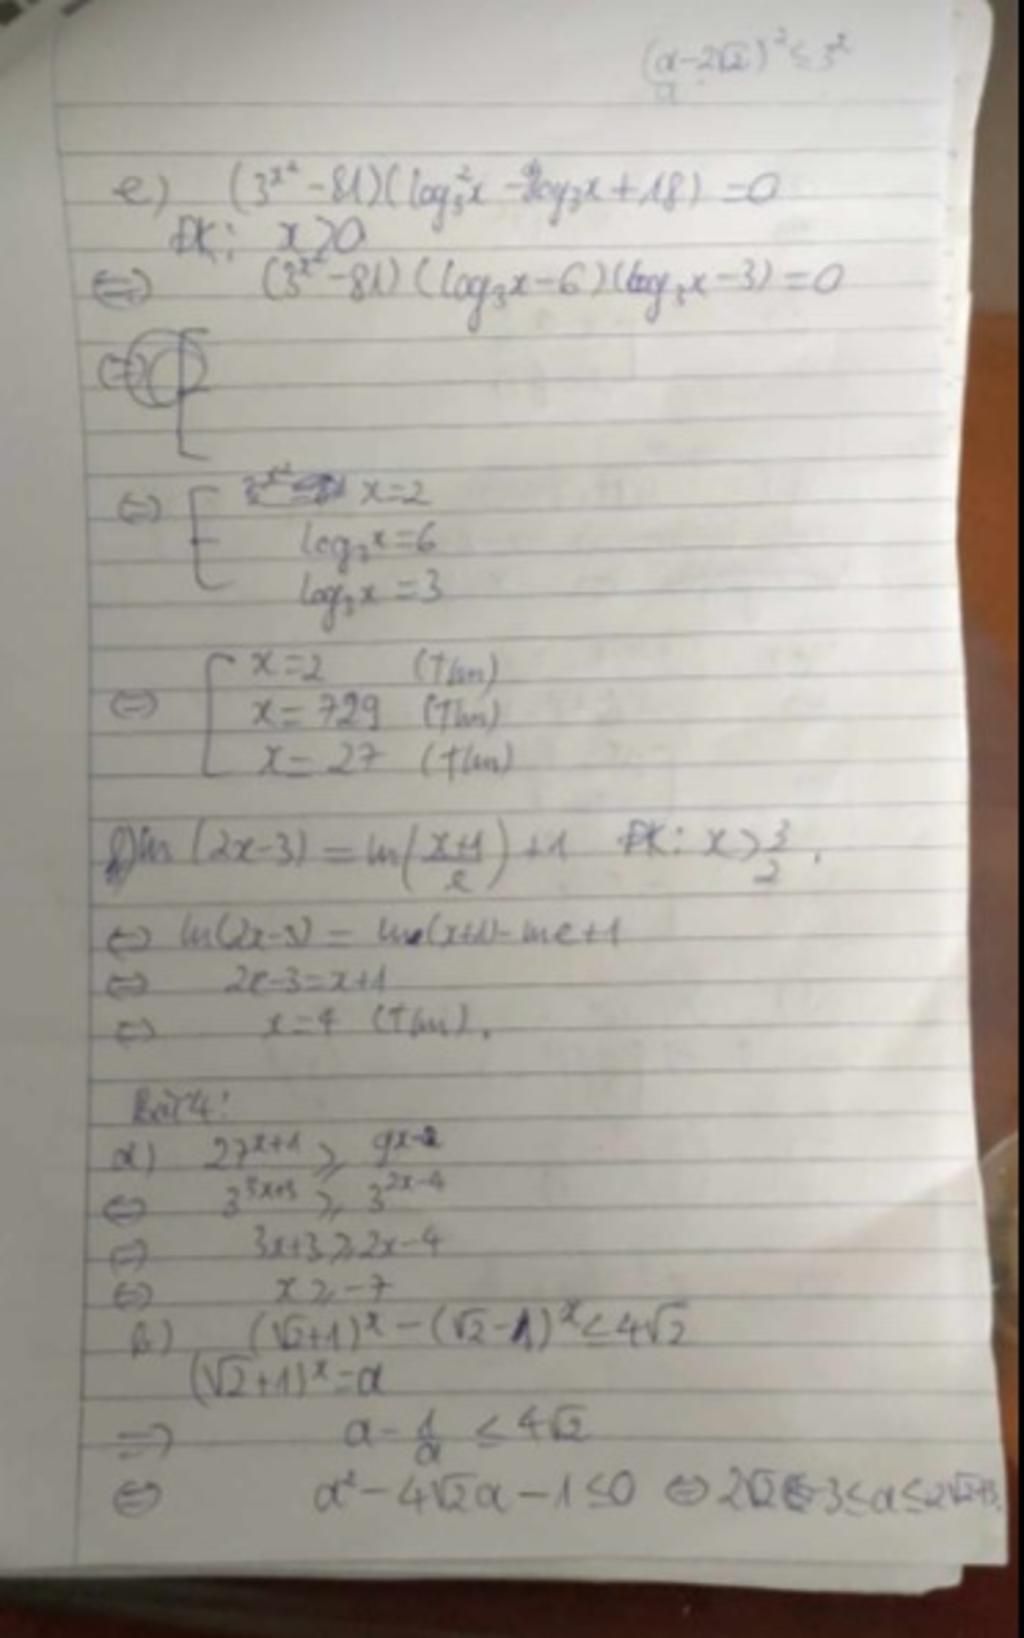 (a-2√2)² ≤ 3²
a
e) (3^{x²} - 81)(log₃²x - 9log₃x + 18) = 0
ĐK: x > 0
⇔ (3^{x²} - 81)(log₃x - 6)(log₃x - 3) = 0
⇔ [
⇔ [ x = 2
log₃x = 6
log₃x = 3
⇔ [ x = 2 (Tlm)
x = 729 (Tlm)
x = 27 (Tlm)
f) ln(2x-3) = ln((x+1)/e) + 1 ĐK: x > 3/2.
⇔ ln(2x-3) = ln(x+1) - lne + 1
⇔ 2x-3 = x+1
⇔ x = 4 (Tlm).
Bài 4:
a) 27^{x+1} ≥ 9^{x-2}
⇔ 3^{3x+3} ≥ 3^{2x-4}
⇔ 3x+3 ≥ 2x-4
⇔ x ≥ -7
b) (√2+1)^x - (√2-1)^x ≤ 4√2
(√2+1)^x = a
⇒ a - 1/a ≤ 4√2
⇔ a² - 4√2a - 1 ≤ 0 ⇔ 2√2-3 ≤ a ≤ 2√2+3